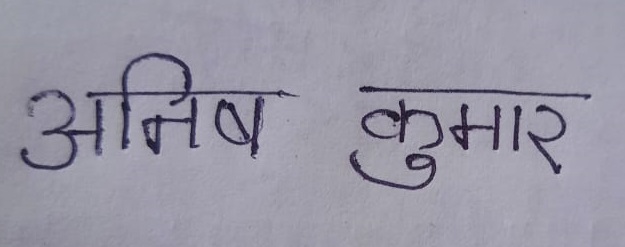 अनिष कुमार